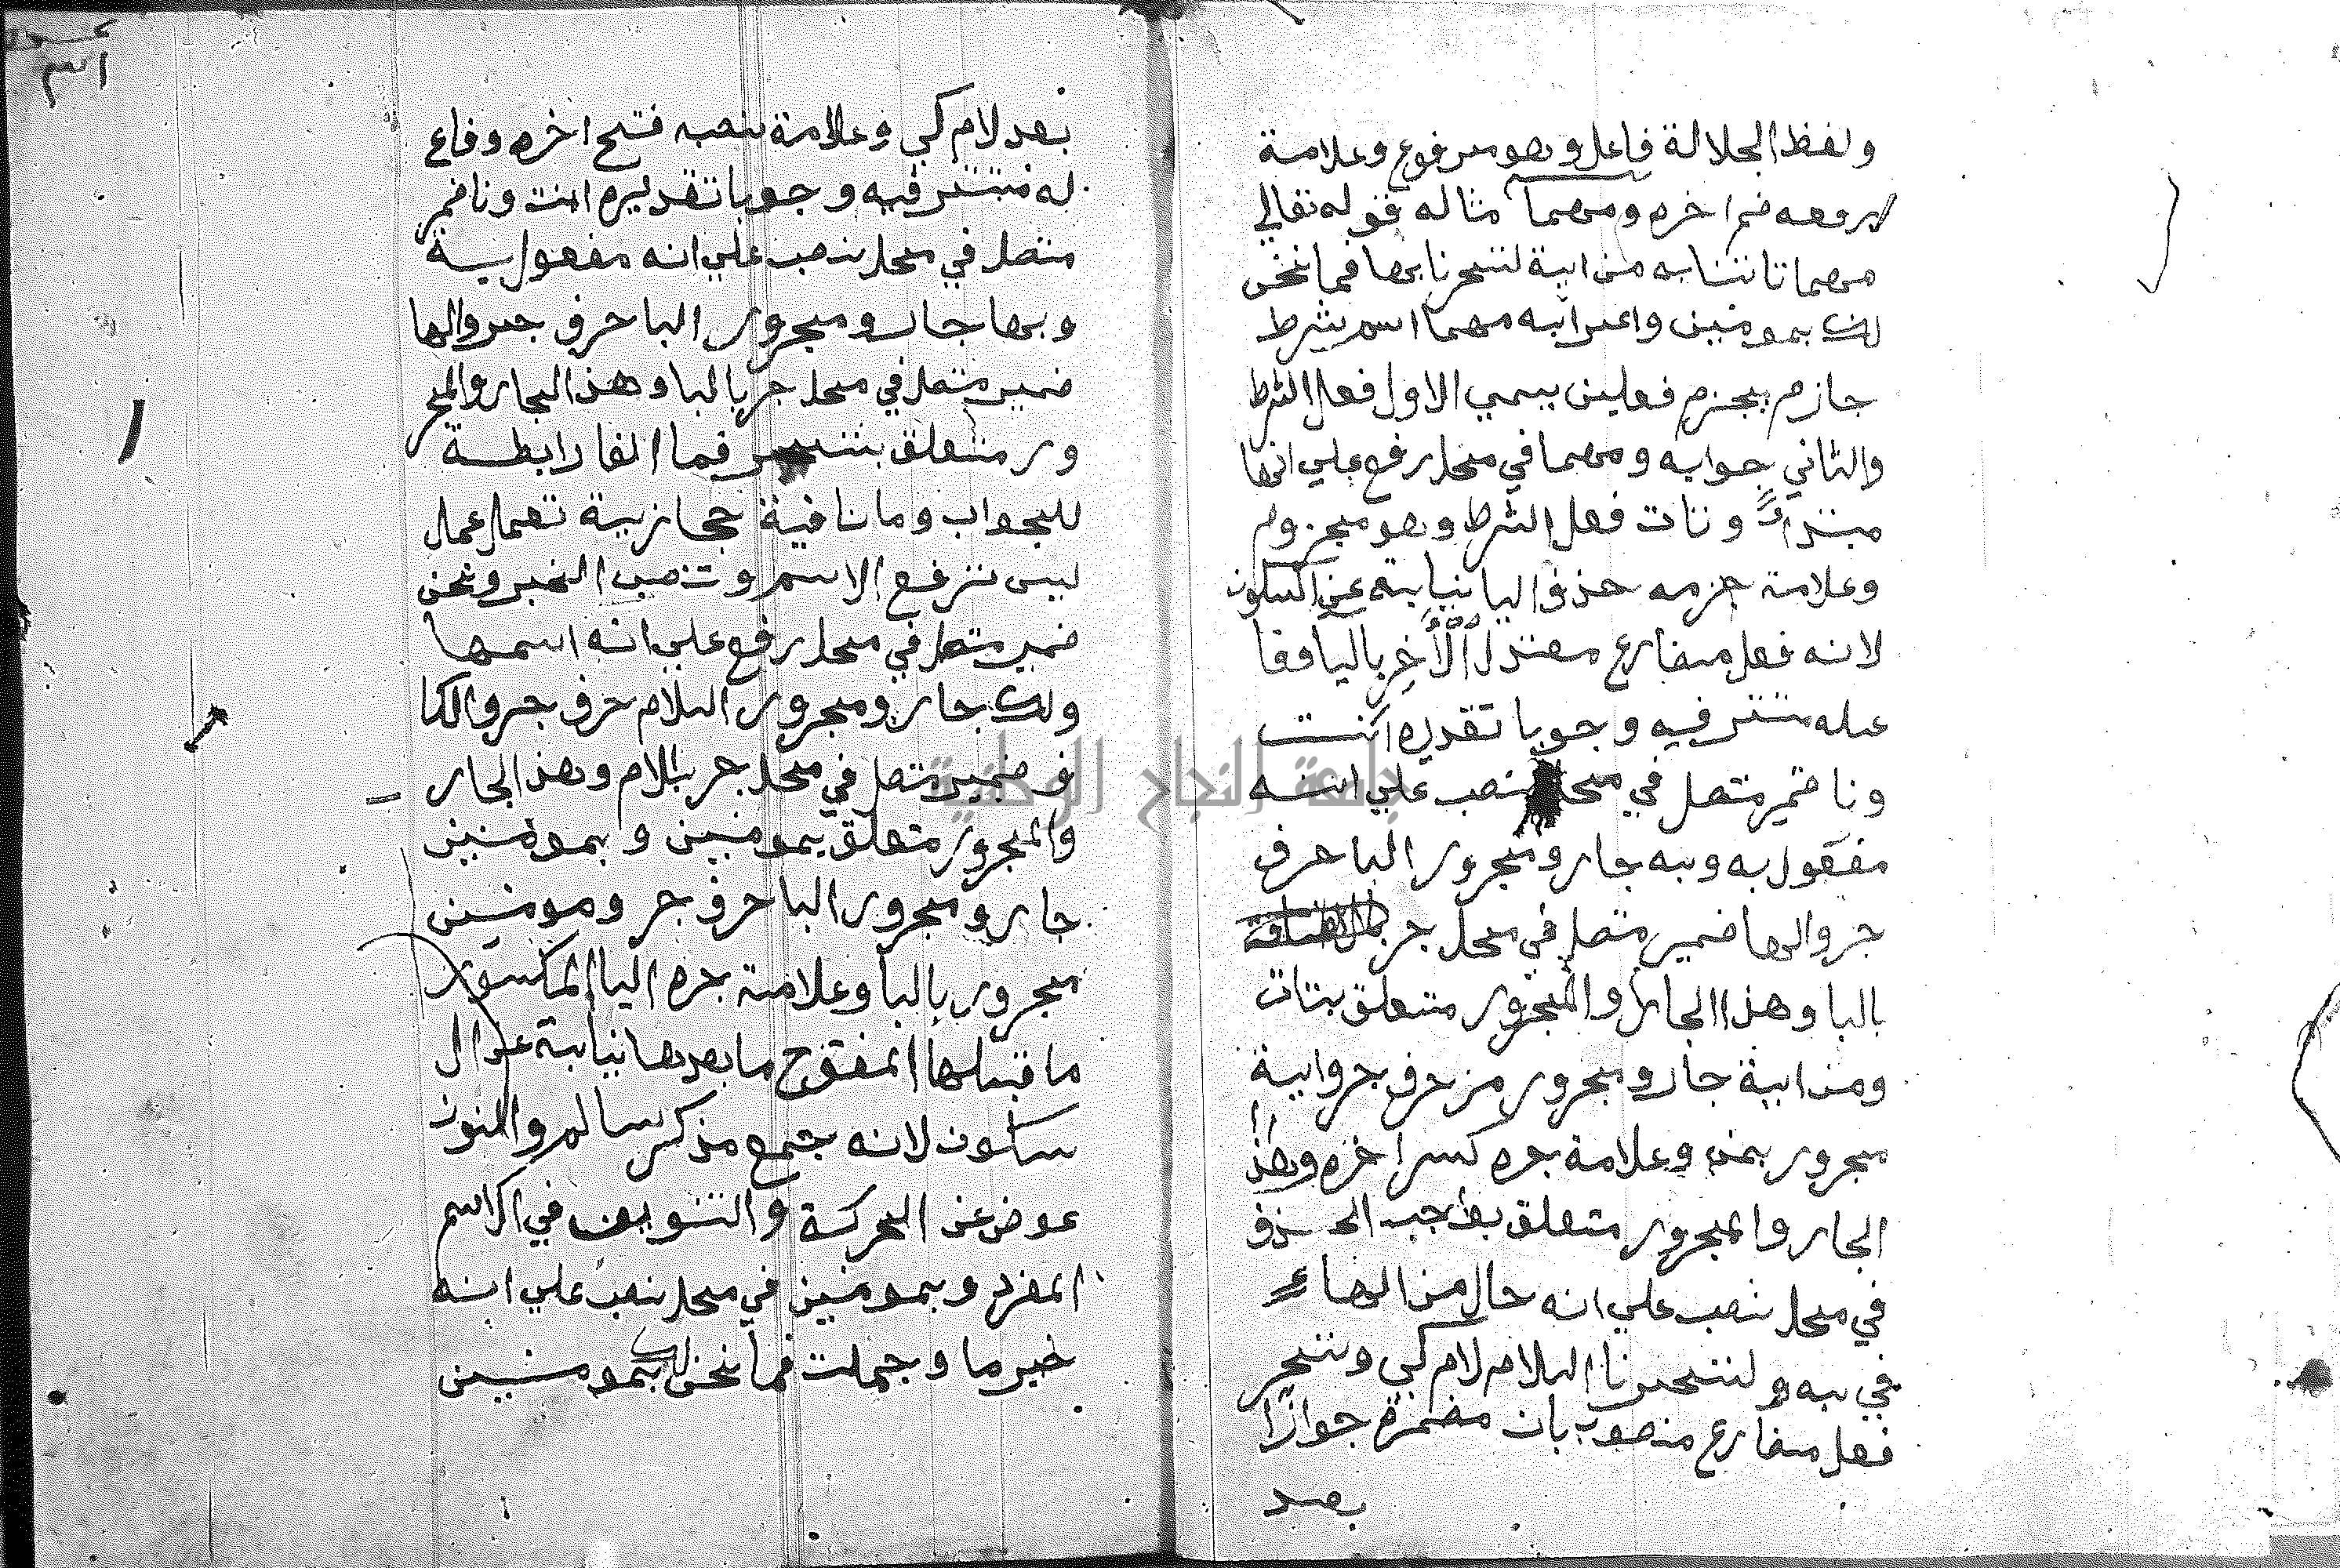 ولفظ الجلالة فاعل وهو مرفوع وعلامة
رفعه ضم اخره ومهما مثاله قوله تعالي
مهما تاتنا به من اية لتسحرنا بها فما نحن
لك بمومنين واعرابه مهما اسم شرط
جازم يجزم فعلين يسمي الاول فعل الشرط
والثاني جوابه ومهما في محل رفع علي انها
مبتدا وتات فعل الشرط وهو مجزوم
وعلامة جزمه حذف اليا نيابة عن السكون
لانه فعل مضارع معتل الاخر باليا وفا
عله مستتر فيه وجوبا تقديره انت
ونا ضمير متصل في محل نصب علي انه
مفعول به وبه جار ومجرور البا حرف
جر والها ضمير متصل في محل جر بالاضافة
بالبا وهذا الجار والمجرور متعلق بتات
ومن اية جار ومجرور من حرف جر واية
مجرور بمن وعلامة جره كسر اخره وهذا
الجار والمجرور متعلق بواجب الحذف
في محل نصب علي انه حال من الهاء
في به ولتسحرنا اللام لام كي وتسحر
فعل مضارع منصوب بان مضمرة جوازا
بعد
اسم
بعد لام كي وعلامة نصبه فتح اخره وفاع
له مستتر فيه وجوبا تقديره انت ونا ضمر
متصل في محل نصب علي انه مفعول به
وبها جار ومجرور البا حرف جر والها
ضمير متصل في محل جر بالبا وهذ الجار والمجر
ور متعلق بتسحر فما الفا رابطة
للجواب وما نافية حجازية تعمل عمل
ليس ترفع الاسم وتنصب الخبر ونحن
ضمير متصل في محل رفع علي انه اسمها
ولك جار ومجرور اللام حرف جر والكا
ف ضمير متصل في محل جر بالام وهذ الجار
والمجرور متعلق بمومنين وبمومنين
جار ومجرور البا حرف جر ومومنين
مجرور بالبا وعلامة جره اليا المكسور
ما قبلها المفتوح ما بعدها نيابة عن ال
سكون لانه جمع مذكر سالم والنون
عوض عن الحركة والتنوين في الاسم
المفرد وبمومنين في محل نصب علي انه
خبر ما وجملت فما نحن لك بمومنين
جامعة النجاح الوطنية